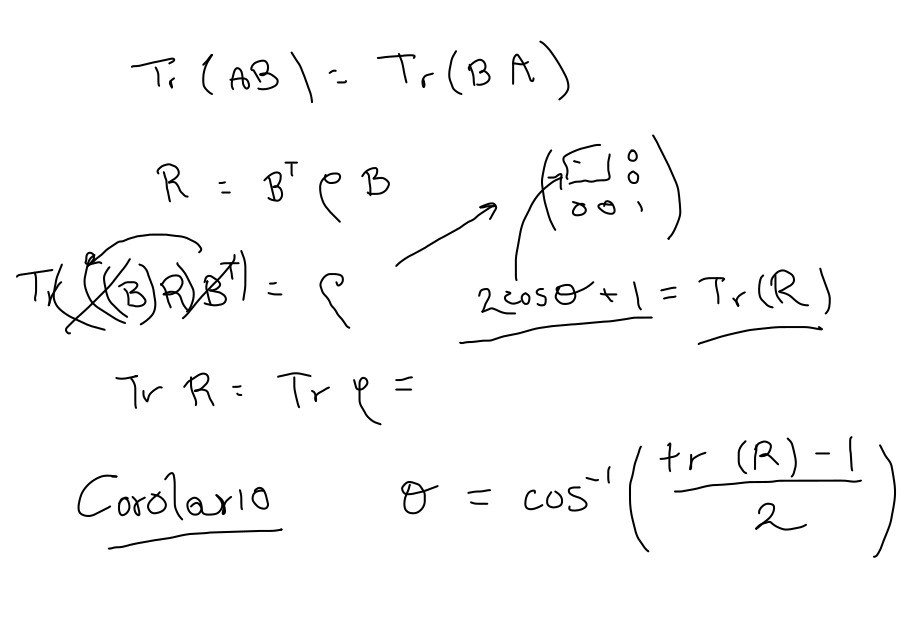 Tr (AB) = Tr (B A)
R = Bᵀ ρ B
( 0 0
0 0 1 )
Tr(((B)R)Bᵀ) = ρ
2cosθ + 1 = Tr(R)
Tr R = Tr ρ =
Corolario θ = cos⁻¹ ( tr (R) - 1 / 2 )